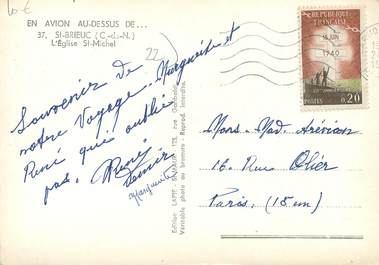 10 €
EN AVION AU-DESSUS DE...
37, SI-BRIEUC (C.-d.-N.)
L'Église St-Michel
22
Souvenir de
notre Voyage. Marguerite et
René qui oublie
pas. René
Marguerite
Edition LAPIE
Véritable photo au bromure - Reprod. interdite.
REPUBLIQUE FRANÇAISE
18 JUIN
1940
POSTES 0,20
Mons. Mad. Arévian
16. Rue Olier
Paris. (15em)